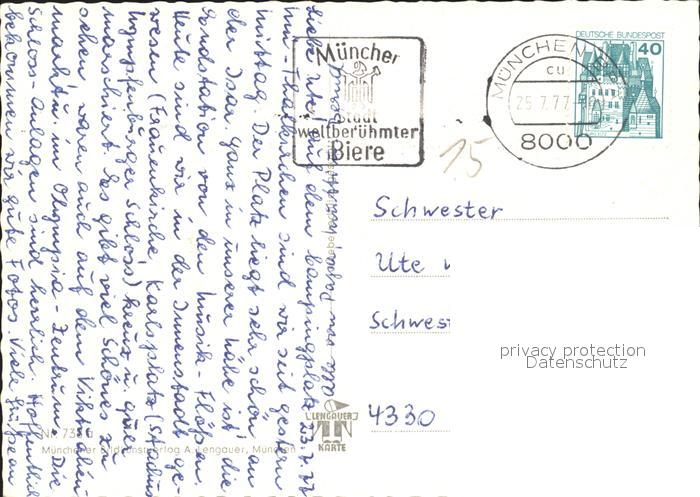 DEUTSCHE BUNDESPOST
40
MÜNCHEN
cu
25.7.77
8000
München
Stadt
weltberühmter
Biere
15
23.7.77
Liebe Ute! Auf dem Campingplatz
sind wir seit gestern
mittag. Der Platz liegt sehr schön an
der Isar ganz in unserer Nähe ist die
Endstation von den Musik-Flößen.
Heute sind wir in der Innenstadt ge-
wesen (Frauenkirche, Karlsplatz (Stachus
Nymphenburger Schloss) kreuz u. quer
marschiert. Es gibt viel Schönes zu
sehen waren auch auf dem Viktualien-
markt u. in Olympia-Zentrum. Die
Schloss-Anlagen sind herrlich. Hoffentlich
bekommen wir gute Fotos Viele Grüße
Schwester
Ute
Schwest
4330
privacy protection
Datenschutz
LENGAUER
KARTE
Nr. 735
Münchener Bildkunstverlag A. Lengauer, München